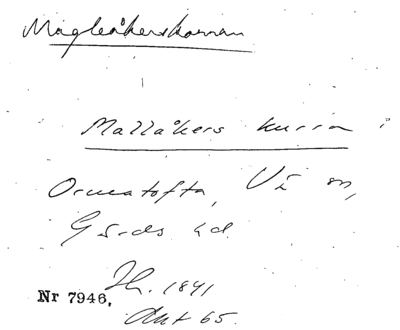 Magleåkerskorran
Mallåkers kurra i
Ormatofta, Vä sn,
Gärds hd.
Jh. 1841
Nr 7946.
Akt 65.